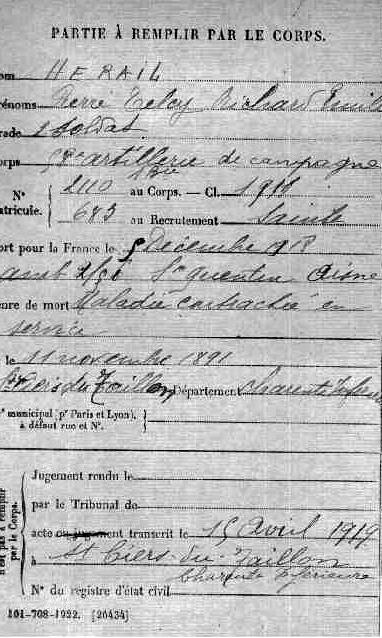 PARTIE À REMPLIR PAR LE CORPS.
om HERAIL
rénoms Pierre Richard Emile
rade 2 soldat
orps artillerie de campagne
N° 2110 au Corps. — Cl. 1911
atricule. 683 au Recrutement Sainte
ort pour la France le 5 Décembre 918
St Quentin Aisne
enre de mort Maladie contractée en
service
le 11 novembre 1891
St Ciers du Taillon Département Charente Infere
municipal (pr Paris et Lyon),
à défaut rue et N°.
n'est pas à remplir
par le Corps.
Jugement rendu le
par le Tribunal de
acte ou jugement transcrit le 15 Avril 1919
à St Ciers-du-Taillon
Charente Inferieure
N° du registre d'état civil
101-708-1922. [26434]